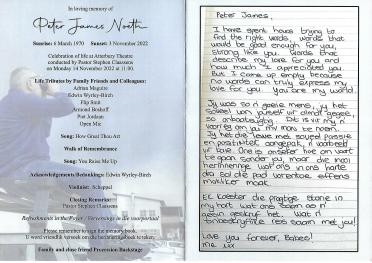 In loving memory of
Peter James North
Sunrise: 6 March 1970 Sunset: 3 November 2022
Celebration of life at Atterbury Theatre
conducted by Pastor Stephen Claassens
on Monday 14 November 2022 at 11:00.
Life Tributes by Family Friends and Colleagues:
Adrian Maguire
Edwin Wyrley-Birch
Flip Smit
Armand Boshoff
Piet Jordaan
Open Mic
Song: How Great Thou Art
Walk of Remembrance
Song: You Raise Me Up
Acknowledgements/Bedankings: Edwin Wyrley-Birch
Violinist: Scheppel
Closing Remarks:
Pastor Stephen Claassens
Refreshments in the Foyer / Verversings in die voorportaal
Please remember to sign the memory book.
U word vriendelik versoek om die herinneringsboek te teken.
Family and close friend Procession Backstage
Peter James,
I have spent hours trying to
find the right words, words that
would be good enough for you,
strong like you. Words that
describe my love for you and
how much I appreciated you.
But I come up empty because
no words can truly express my
love for you. You are my world.
Jy was so 'n goeie mens, jy het
soveel van jouself vir almal gegee,
so onbaatsugtig. Dit is vir my 'n
voorreg om jou my man te noem.
Jy het die lewe met soveel passie
en positiwiteit aangepak, 'n voorbeeld
vir baie. Ons is onseker hoe om voort
te gaan sonder jou, maar die mooi
herinneringe wat ons in ons harte
dra sal die pad vorentoe effens
makliker maak.
Ek koester die pragtige
my hart wat ons saam as 'n
gesin geskryf het. Wat 'n
ongelooflike reis saam met jou!
Love you forever, Babes!
Me xxx